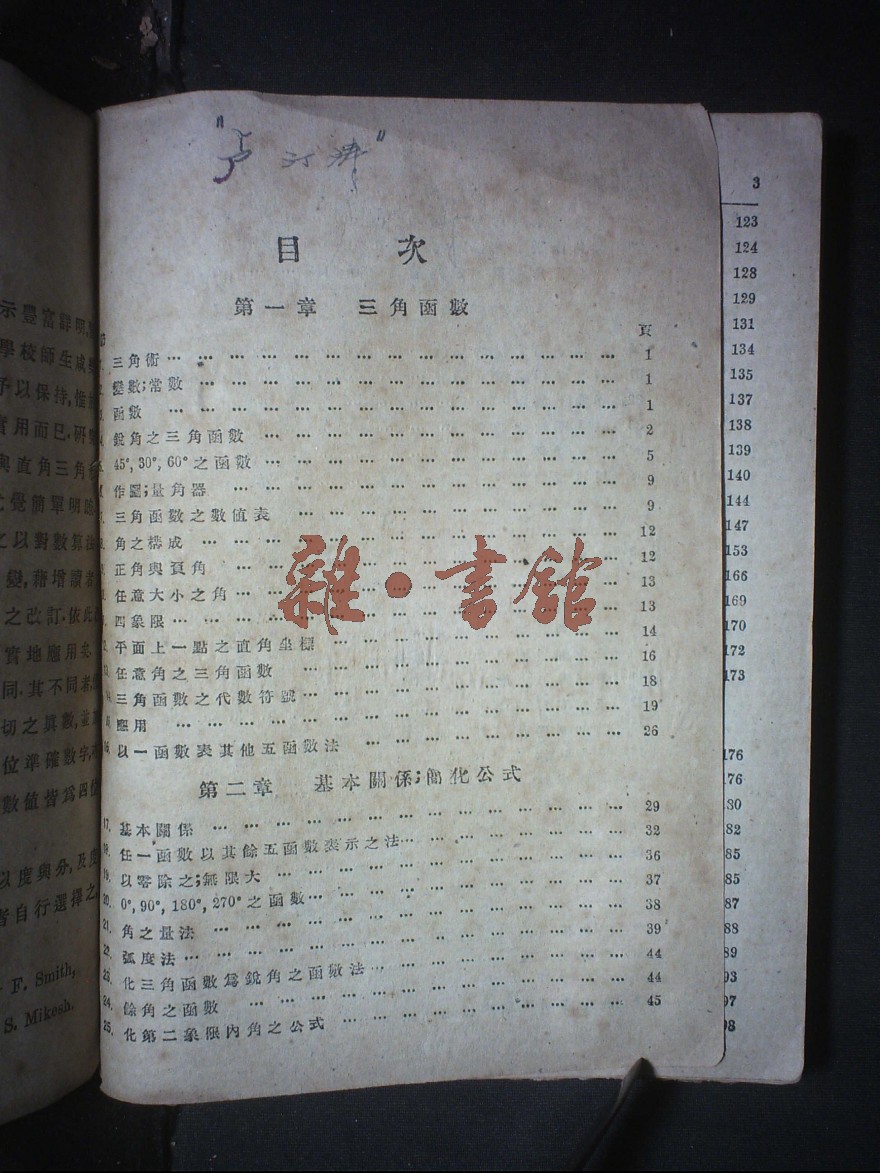 目 次
第一章 三角函數
頁
三角術 … 1
變數;常數 … 1
函數 … 1
銳角之三角函數 … 2
45°,30°,60°之函數 … 5
作圖;量角器 … 9
三角函數之數值表 … 9
角之構成 … 12
正角與負角 … 12
任意大小之角 … 13
四象限 … 13
平面上一點之直角坐標 … 14
任意角之三角函數 … 16
三角函數之代數符號 … 18
應用 … 19
以一函數表其他五函數法 … 26
第二章 基本關係;簡化公式
17. 基本關係 … 29
18. 任一函數以其餘五函數表示之法 … 32
19. 以零除之;無限大 … 36
20. 0°,90°,180°,270°之函數 … 37
21. 角之量法 … 38
22. 弧度法 … 39
23. 化三角函數爲銳角之函數法 … 44
24. 餘角之函數 … 44
25. 化第二象限內角之公式 … 45
雜·書館
示豐富
學校師生
予以保持,
實用而已.研
與直角三角
覺簡單明
之以對數算
變,藉增讀者
之改訂.依此
實地應用
同.其不同者
切之真數,
位準確數字,
數值皆爲四位
以度與分,及度
者自行選擇之.
F. Smith,
S. Mikesh.
3
123
124
128
129
131
134
135
137
138
139
140
144
147
153
166
169
170
172
173
176
176